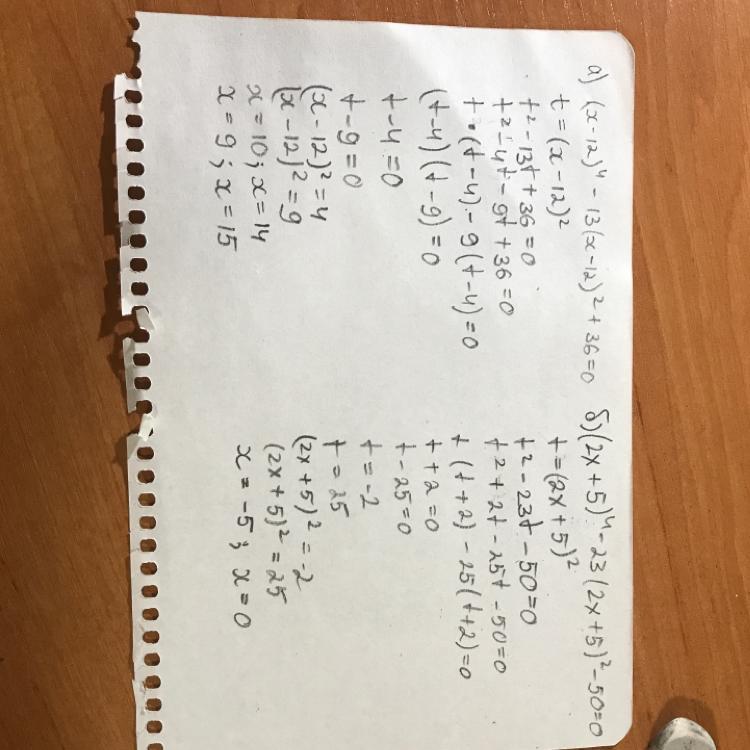 а) (x-12)⁴ - 13(x-12)² + 36=0
t = (x-12)²
t² - 13t + 36 = 0
t² - 4t - 9t + 36 = 0
t · (t-4) - 9(t-4) = 0
(t-4)(t-9) = 0
t-4=0
t-9=0
(x-12)² = 4
(x-12)² = 9
x = 10; x = 14
x = 9; x = 15
б) (2x+5)⁴ - 23(2x+5)² - 50=0
t = (2x+5)²
t² - 23t - 50 = 0
t² + 2t - 25t - 50 = 0
t (t+2) - 25(t+2) = 0
t + 2 = 0
t - 25 = 0
t = -2
t = 25
(2x+5)² = -2
(2x+5)² = 25
x = -5; x = 0